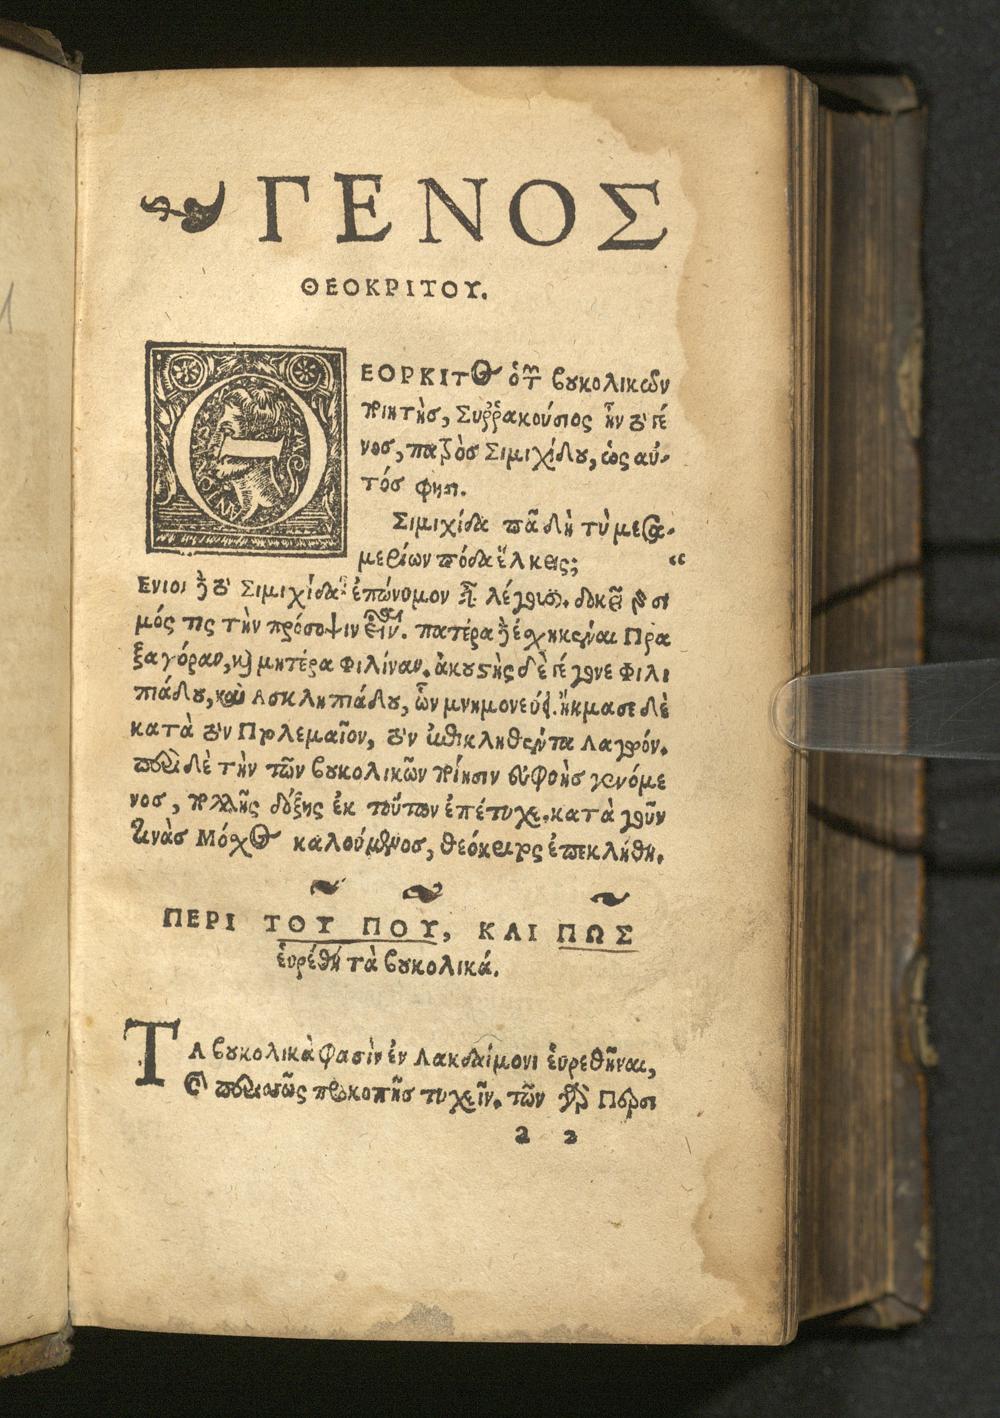 ΓΕΝΟΣ
ΘΕΟΚΡΙΤΟΥ.
ΘΕΟΡΚΙΤΟς ὁ τῶν βουκολικῶν
ποιητὴς, Συῤῥακούσιος ἦν τὸ γέ
νος, πατρὸς Σιμιχίδου, ὡς αὐ-
τός φησι.
Σιμιχίδα πᾶ δὴ τὺ μεσα-
μερίων πόδα ἕλκεις; “
Ἔνιοι δὲ τὸ Σιμιχίδα ἐπώνυμον εἶναι λέγουσι. δοκεῖ γὰρ σι
μός τις τὴν πρόσοψιν εἶναι. πατέρα δὲ ἐσχηκέναι Πρα
ξαγόραν, καὶ μητέρα Φιλίναν. ἀκουστὴς δὲ γέγονε Φιλι
πιάδου, καὶ Ἀσκληπιάδου, ὧν μνημονεύει. ἤκμασε δὲ
κατὰ τὸν Πτολεμαῖον, τὸν ἐπικληθέντα Λαγωόν.
περὶ δὲ τὴν τῶν βουκολικῶν ποίησιν εὐφυὴς γενόμε
νος, πολλῆς δόξης ἐκ τούτων ἐπέτυχε. κατὰ γοῦν
τινὰς Μόσχος καλούμενος, Θεόκριτος ἐπεκλήθη.
ΠΕΡΙ ΤΟΥ ΠΟΥ, ΚΑΙ ΠΩΣ
εὑρέθη τὰ βουκολικά.
ΤΑ βουκολικὰ φασὶν ἐν Λακεδαίμονι εὑρεθῆναι,
καὶ περισσῶς προκοπῆς τυχεῖν. τῶν γὰρ Περσι
a 2